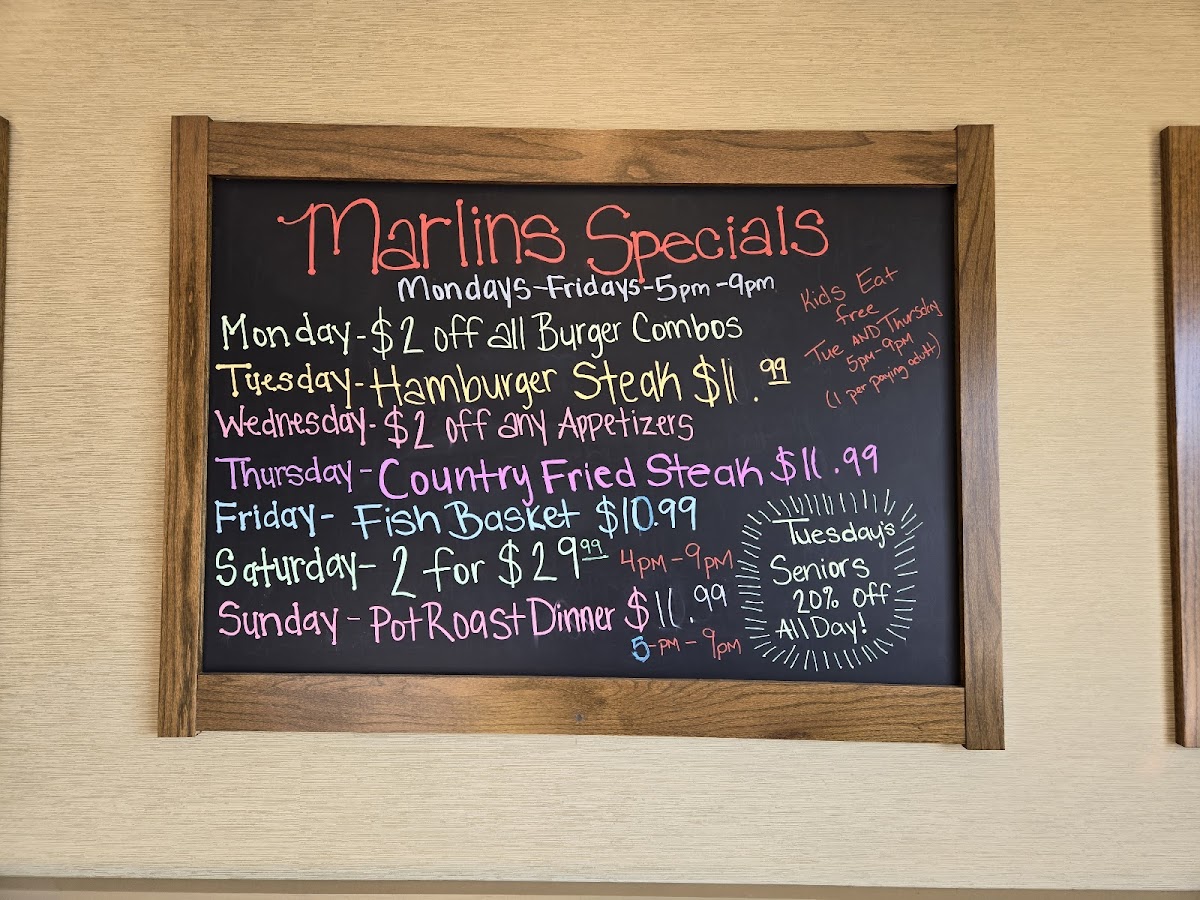 Marlins Specials
Mondays-Fridays-5pm-9pm
Kids Eat
free
Tue AND Thursday
5pm-9pm
(1 per paying adult)
Monday-$2 off all Burger Combos
Tuesday-Hamburger Steak $11.99
Wednesday-$2 off any Appetizers
Thursday-Country Fried Steak $11.99
Friday- Fish Basket $10.99
Saturday- 2 for $29 99 4pm-9pm
Sunday-Pot Roast Dinner $11.99
5-pm-9pm
Tuesday's
Seniors
20% off
All Day!